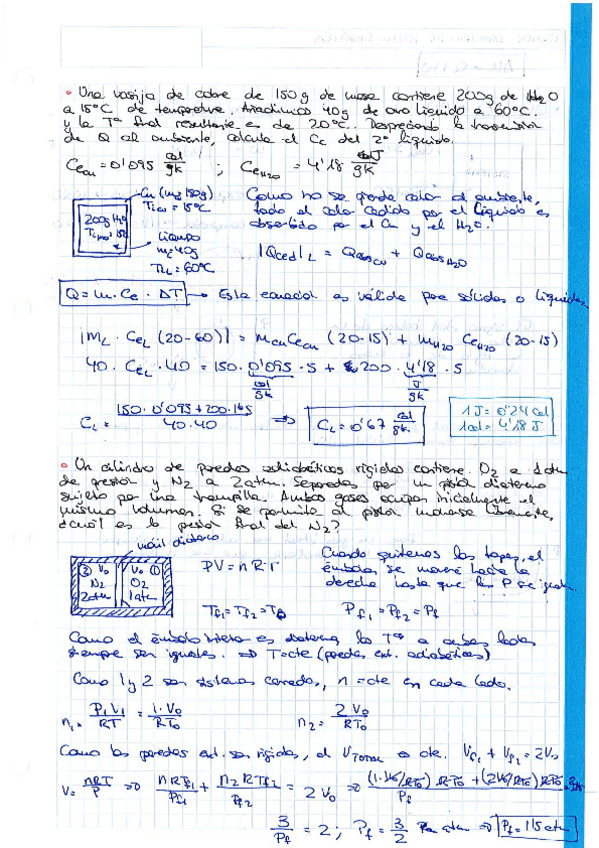 • Una vasija de cobre de 150g de masa contiene 200g de H₂O
a 15°C de temperatura. Añadimos 40g de otro líquido a 60°C.
y la Tª final resultante es de 20°C. Despreciando la transmisión
de Q al ambiente, calcula el Ce del 2º líquido.
Ce_Cu = 0'095 cal/gk ; Ce_H₂O = 4'18 J/gk
Cu (m= 150g)
T_iCu = 15°C
200g H₂O
líquido
m= 40g
T_iL = 60°C
Como no se pierde calor al ambiente,
todo el calor cedido por el líquido es
absorbido por el Cu y el H₂O.
|Qced|_L = Qabs_Cu + Qabs_H₂O
Q = m · Ce · ΔT → Esta ecuación es válida para sólidos o líquidos
|m_L · Ce_L (20-60)| = m_Cu Ce_Cu (20-15) + m_H₂O Ce_H₂O (20-15)
40 · Ce_L · 40 = 150 · 0'095 · 5 + 200 · 4'18 · 5
cal/gk J/gk
C_L = 150 · 0'095 + 200 · 1 · 5 / 40 · 40 ⇒ C_L = 0'67 cal/gk
1 J = 0'24 cal
1 cal = 4'18 J
• Un cilindro de paredes adiabáticas rígidas contiene O₂ a 1 atm
de presión y N₂ a 2 atm. Separados por un pistón diatermo
sujeto por una trampilla. Ambos gases ocupan inicialmente el
mismo volumen. Si se permite al pistón moverse libremente,
¿cuál es la presión final del N₂?
móvil diatermo
② V₀ N₂ 2 atm
V₀ ① O₂ 1 atm
PV = n · R · T
T_f1 = T_f2 = T₀
Cuando quitemos los topes, el
émbolo se moverá hacia la
derecha hasta que las P se igualen
P_f1 = P_f2 = P_f
Como el émbolo interno es diatermo las Tª a ambos lados
siempre son iguales. ⇒ T = cte (paredes ext. adiabáticas)
Como 1 y 2 son sistemas cerrados, n = cte en cada lado.
n₁ = P₁V₁/RT = 1 · V₀/RT₀ n₂ = 2 V₀/RT₀
Como las paredes ext. son rígidas, el V_TOTAL es cte. V_f1 + V_f2 = 2V₀
V = nRT/P ⇒ n RT_f1/P_f1 + n₂ R T_f2/P_f2 = 2 V₀ ⇒ (1·V₀/RT₀) RT₀ + (2V₀/RT₀) RT₀ / P_f
3/P_f = 2 ; P_f = 3/2 atm ⇒ P_f = 1'5 atm